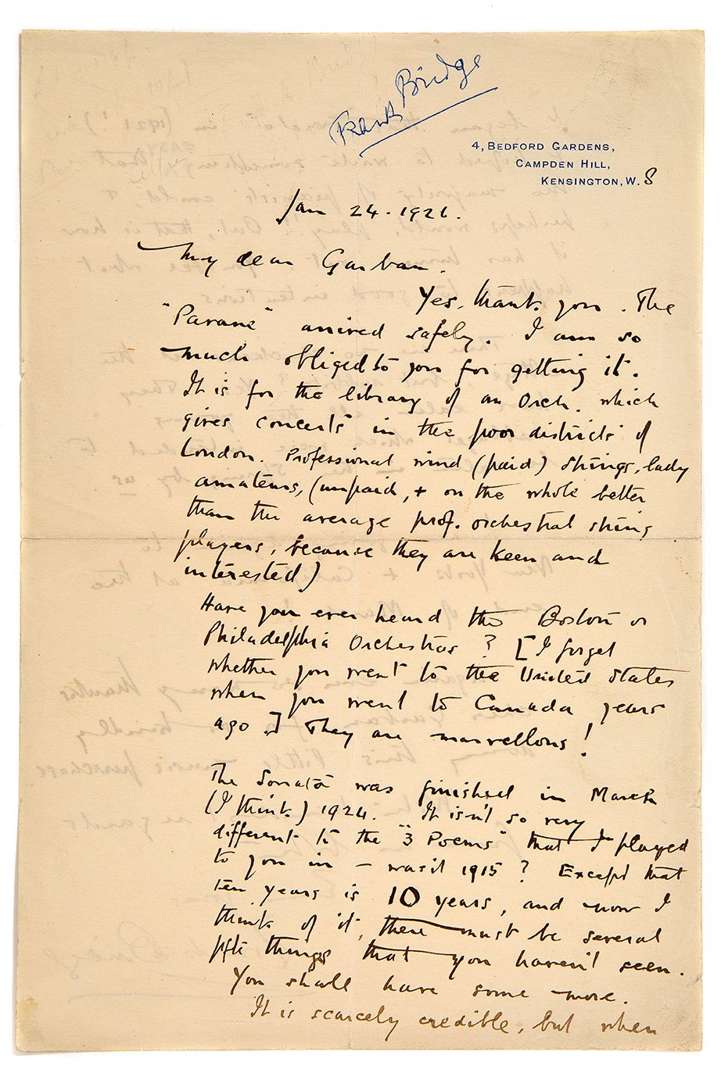 Frank Bridge
4, BEDFORD GARDENS,
CAMPDEN HILL,
KENSINGTON, W. 8
Jan 24. 1926.
My dear Garban.
Yes, thank you. The
"Pavane" arrived safely. I am so
much obliged to you for getting it.
It is for the library of an Orch. which
gives concerts in the poor districts of
London. Professional wind (paid) strings, lady
amateurs, (unpaid, + on the whole better
than the average prof. orchestral string
players, because they are keen and
interested)
Have you ever heard the Boston or
Philadelphia Orchestras? [I forget
whether you went to the United States
when you went to Canada years
ago] They are marvellous!
The Sonata was finished in March
(I think) 1924. It isn't so very
different to the "3 Poems" that I played
to you in – was it 1915? Except that
ten years is 10 years, and now I
think of it, there must be several
things that you haven't seen.
You shall have some more.
It is scarcely credible, but when